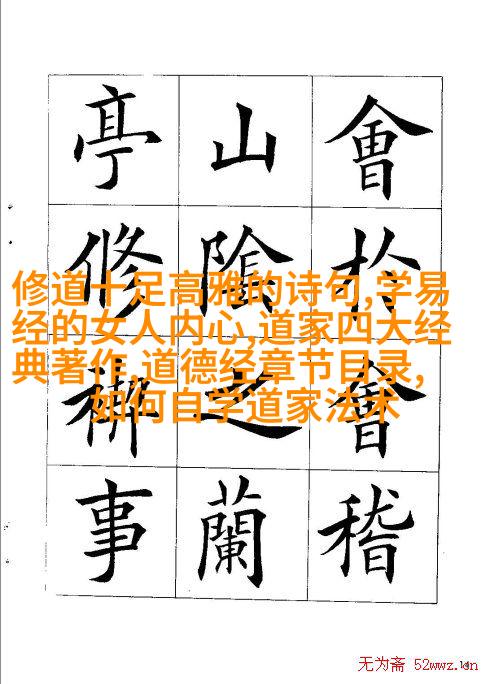 會扵會稽
山陰之蘭
亭修禊事
修道十足高雅的诗句,学易
经的女人内心,道家四大经
典著作,道德经章节目录,
如何自学道家法术
无为斋 52wwz.cn